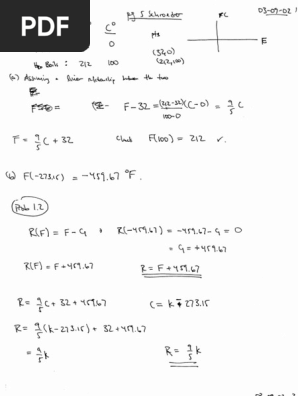 PDF
pg 5 Schroeder
03-09-02
C°
F C
pts
0
(32,0)
(212,100)
E
212 100
(a) Assuming a linear relationship between the two
F - 32 = (212-32)/(100-0) (C-0) = 9/5 C
F = 9/5 C + 32 Check F(100) = 212 ✓.
(b) F(-273.15) = -459.67 °F.
Prob 1.2
R(F) = F - G , R(-459.67) = -459.67 - G = 0
= G = +459.67
R(F) = F + 459.67 R = F + 459.67
R = 9/5 C + 32 + 459.67 C = K - 273.15
R = 9/5 (K - 273.15) + 32 + 459.67
= 9/5 K R = 9/5 K